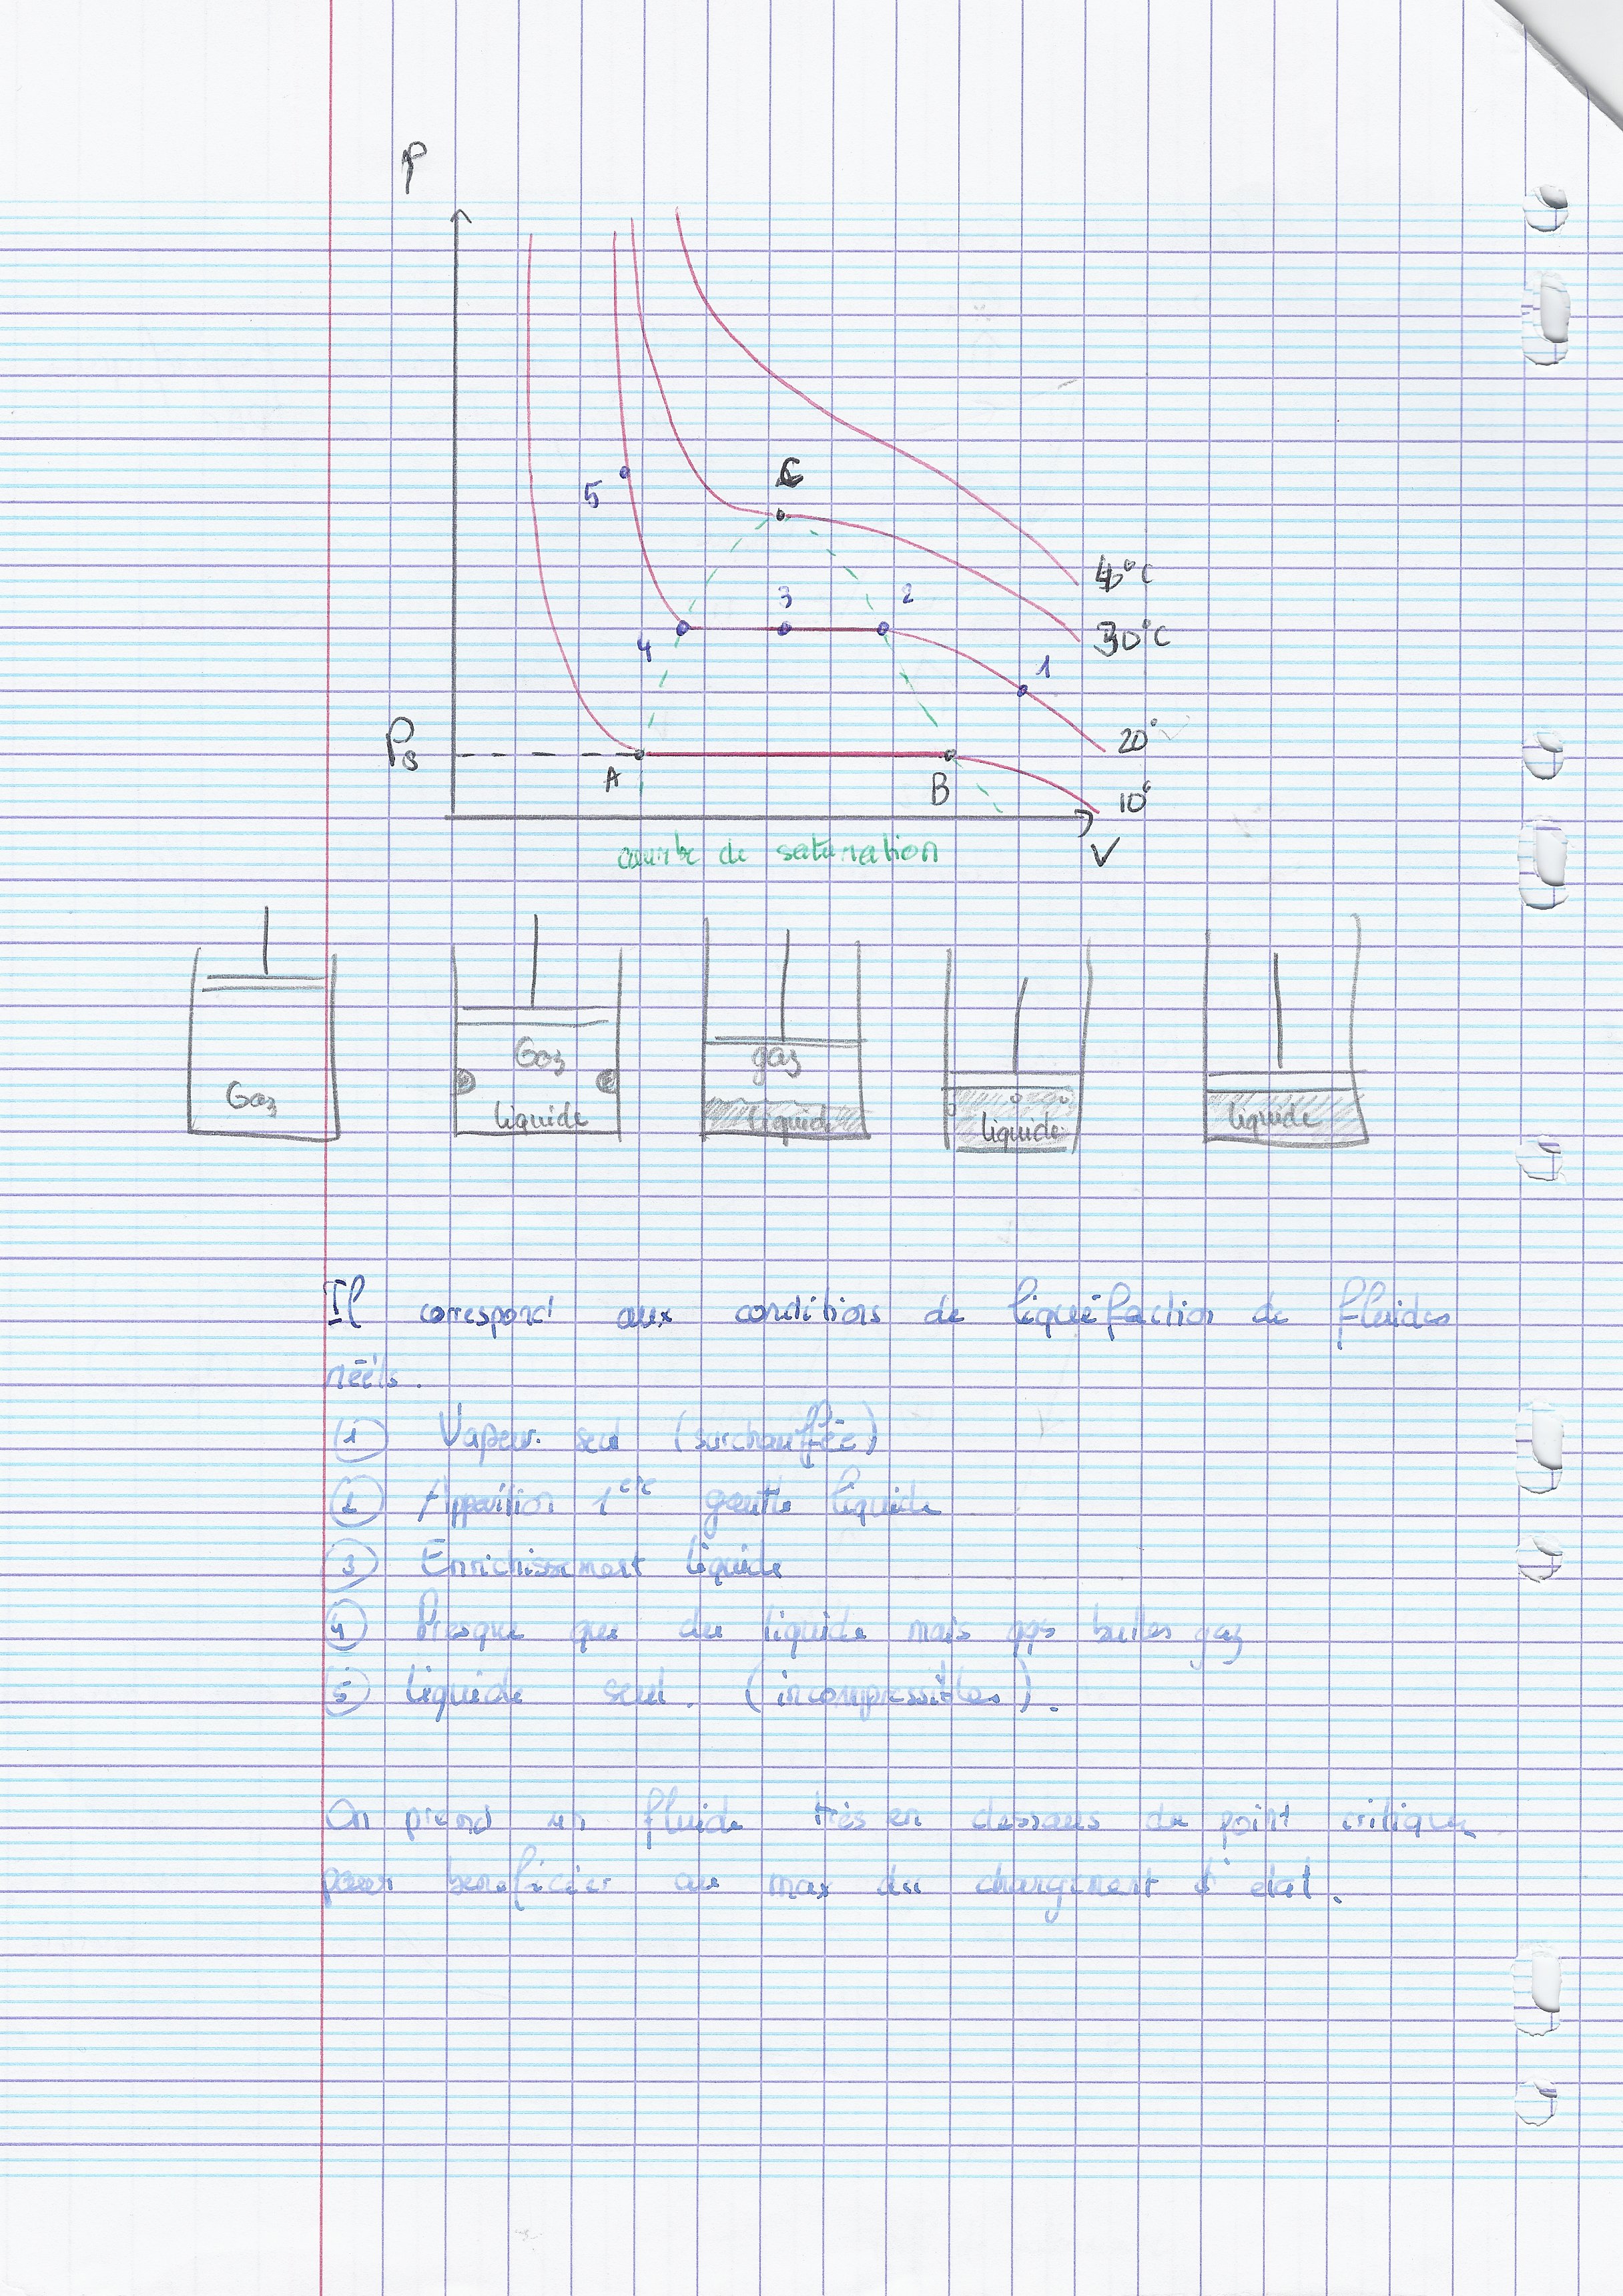 P
C
5
40°C
3
2
30°C
4
1
Ps
20°
A
B
10°
V
courbe de saturation
Gaz
Gaz
liquide
gaz
liquide
liquide
liquide
Il correspond aux conditions de liquéfaction de fluides
réels.
① Vapeur seul (surchauffée)
② Apparition 1ere goutte liquide
③ Enrichissement liquide
④ Presque que du liquide mais qqs bulles gaz
⑤ liquide seul. (incompressibles).
On prend un fluide très en dessous du point critique
pour beneficier au max du changement d'état.